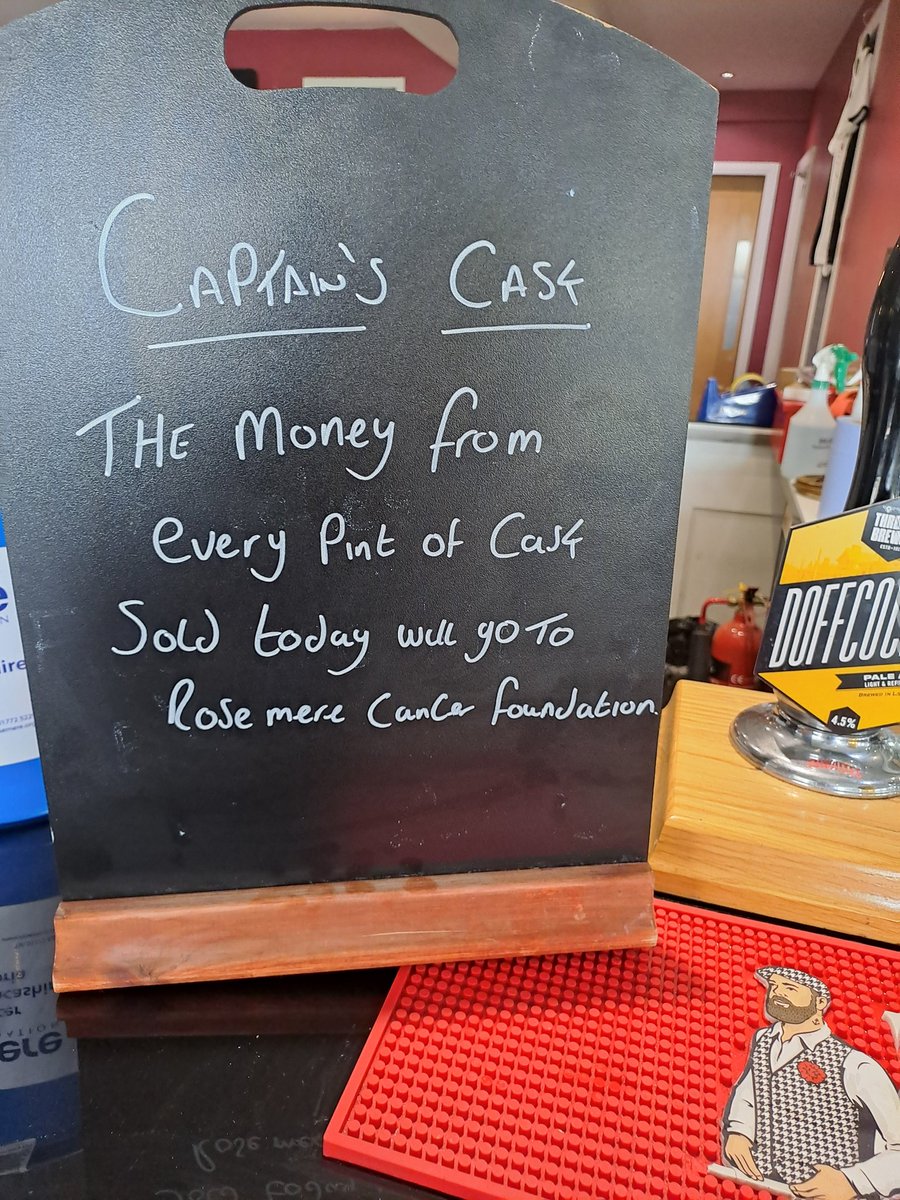 CAPTAIN'S CASK
THE Money from
every Pint of Cask
Sold today will go TO
Rosemere Cancer foundation.
DOFFCOC
PALE A
LIGHT & REF
BREWED IN L
4.5%
THR
BREW
e
N
ire